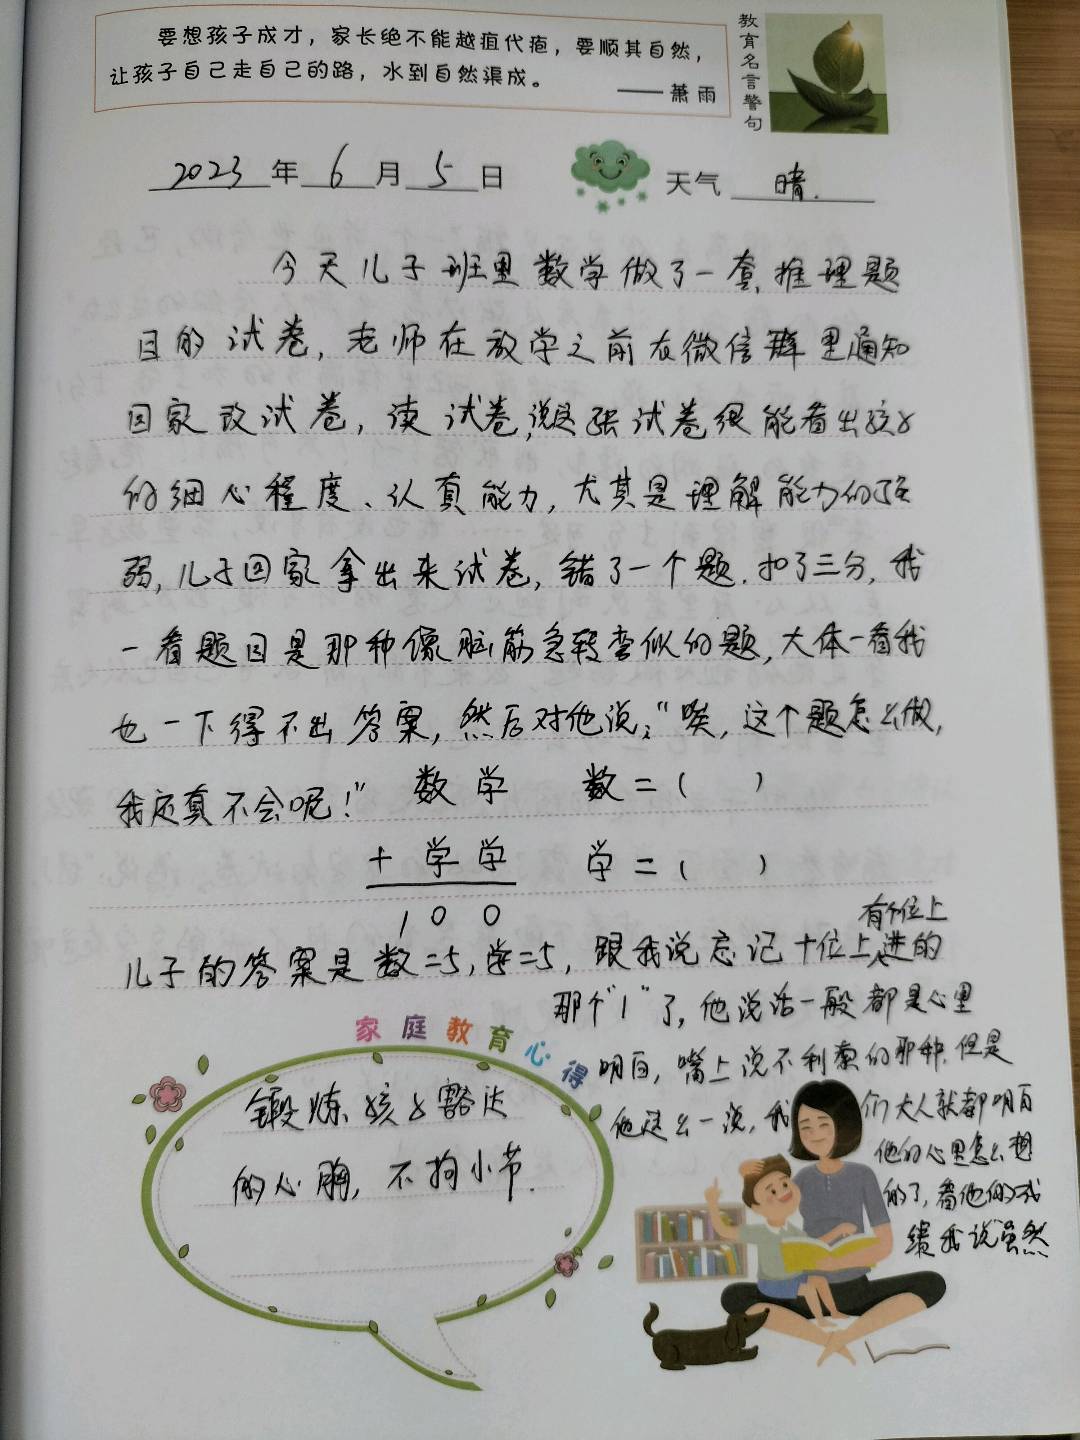 要想孩子成才，家长绝不能越疽代疱，要顺其自然，
让孩子自己走自己的路，水到自然渠成。
——萧雨
教育名言警句
2023年6月5日
天气 晴.
今天儿子班里数学做了一套推理题
目的试卷，老师在放学之前在微信群里通知
回家改试卷，读试卷，说这张试卷很能看出孩子
的细心程度、认真能力，尤其是理解能力的强
弱，儿子回家拿出来试卷，错了一个题.扣了三分，我
一看题目是那种像脑筋急转弯似的题，大体一看我
也一下得不出答案，然后对他说："唉，这个题怎么做，
我还真不会呢！"
数学 数=( )
+学学 学=( )
100
儿子的答案是数=5,学=5，跟我说忘记十位上有个位上进的
那个"1"了，他说话一般都是心里
明白，嘴上说不利索的那种.但是
他这么一说，我们大人就都明白
他的心里怎么想
的了，看他的成
绩我说"虽然
家庭教育心得
锻炼孩子豁达
的心胸，不拘小节.